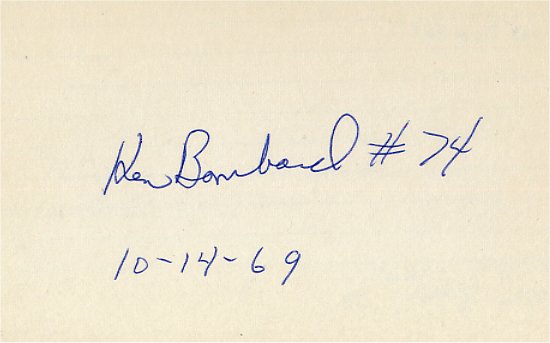 Ken Bombard # 74
10-14-69